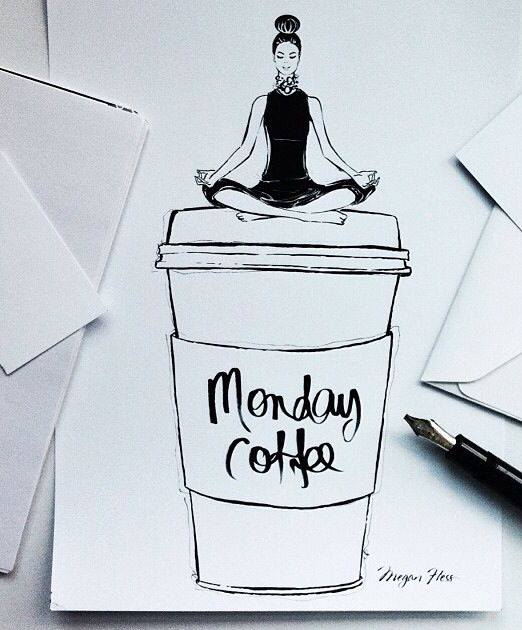 Monday
Coffee
Megan Hess